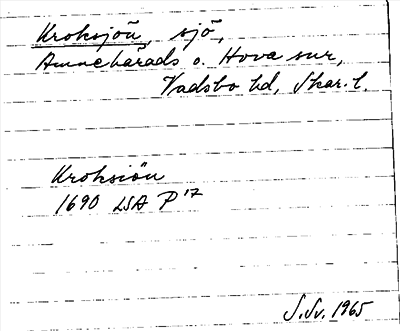 Kroksjön, sjö,
Amnehärads o. Hova snr,
Vadsbo hd, Skar. l.
Kroksiön
1690 LSA P 17
S. Sv. 1965